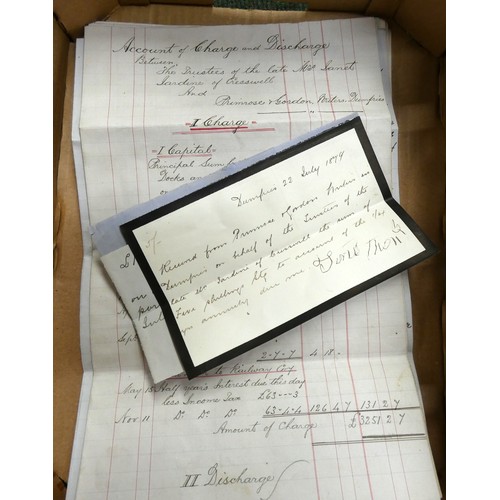 Account of Charge and Discharge
Between
The Trustees of the late Mrs Janet
Jardine of Cresswell
And
Primrose & Gordon, Writers, Dumfries
= I Charge =
= I Capital =
Principal Sum
Docks
Dumfries 23 July 1879
Received from Primrose & Gordon Writers in
Dumfries on behalf of the Trustees of the
late Mrs Jardine of Cresswell the sum of
Five Shillings Stg to account of the
my annuity due me
Sept
2-7-7 4 18 -
to Railway Coy
May 15 Half year's Interest due this day
less Income Tax £63---3
Nov. 11 Do. Do. Do. 63-4-4 126 4 7 131 2 7
Amount of Charge £3251 2 7
II Discharge